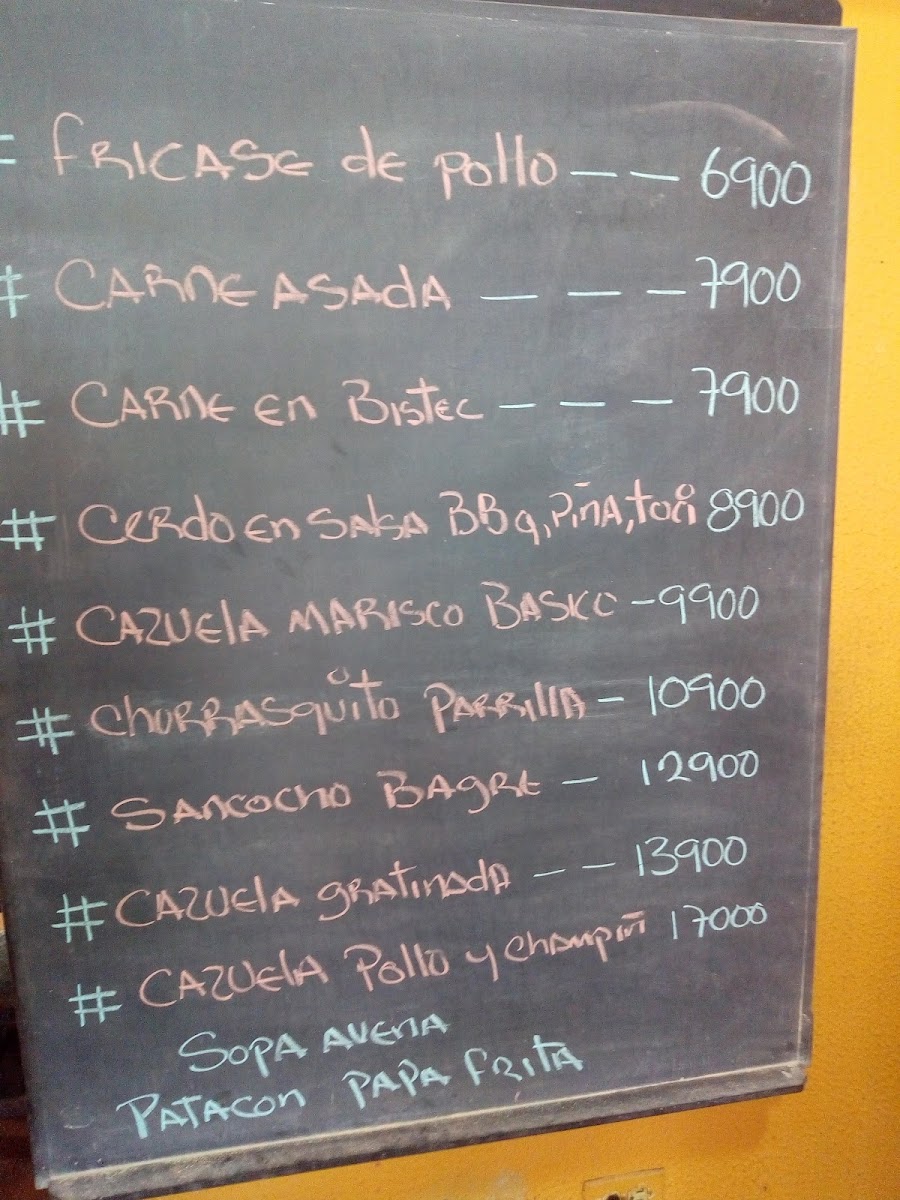 # FRICASE de pollo -- 6900
# CARNE ASAdA --- 7900
# CARNE En BistEC --- 7900
# CERdo En SAlsA BBq, Piña, 8900
# CAZUElA MARISCO BASKO - 9900
# ChURRASquito PARRIllA - 10900
# SANCOCHO BAgRE - 12900
# CAZUElA gRAtinAdA -- 13900
# CAZUElA Pollo y Champiñ 17000
SOPA AVENA
PATACON PAPA FRITA